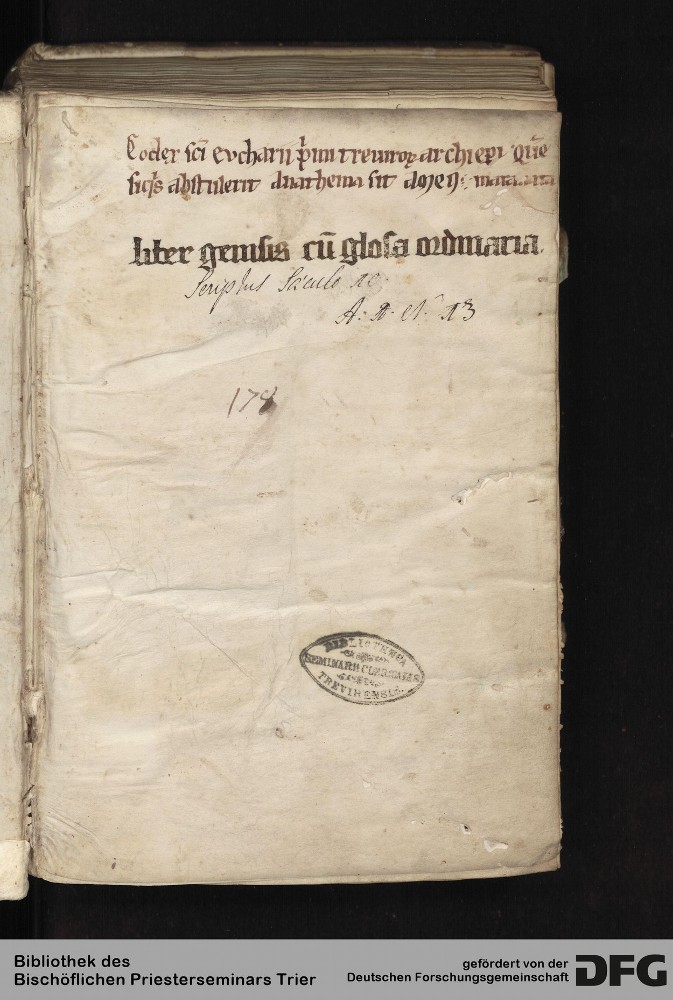 Codex sci eucharii p̃mi treuiroꝝ archiepi Quē
siq̃s abstulerit anathema sit amen
liber genesis cū glosa ordinaria.
Scriptus Sæculo 10
A: N. 13
178
BIBLIOTHECA
SEMINARII CLERICALIS
TREVIRENSIS.
Bibliothek des
Bischöflichen Priesterseminars Trier
gefördert von der
Deutschen Forschungsgemeinschaft
DFG